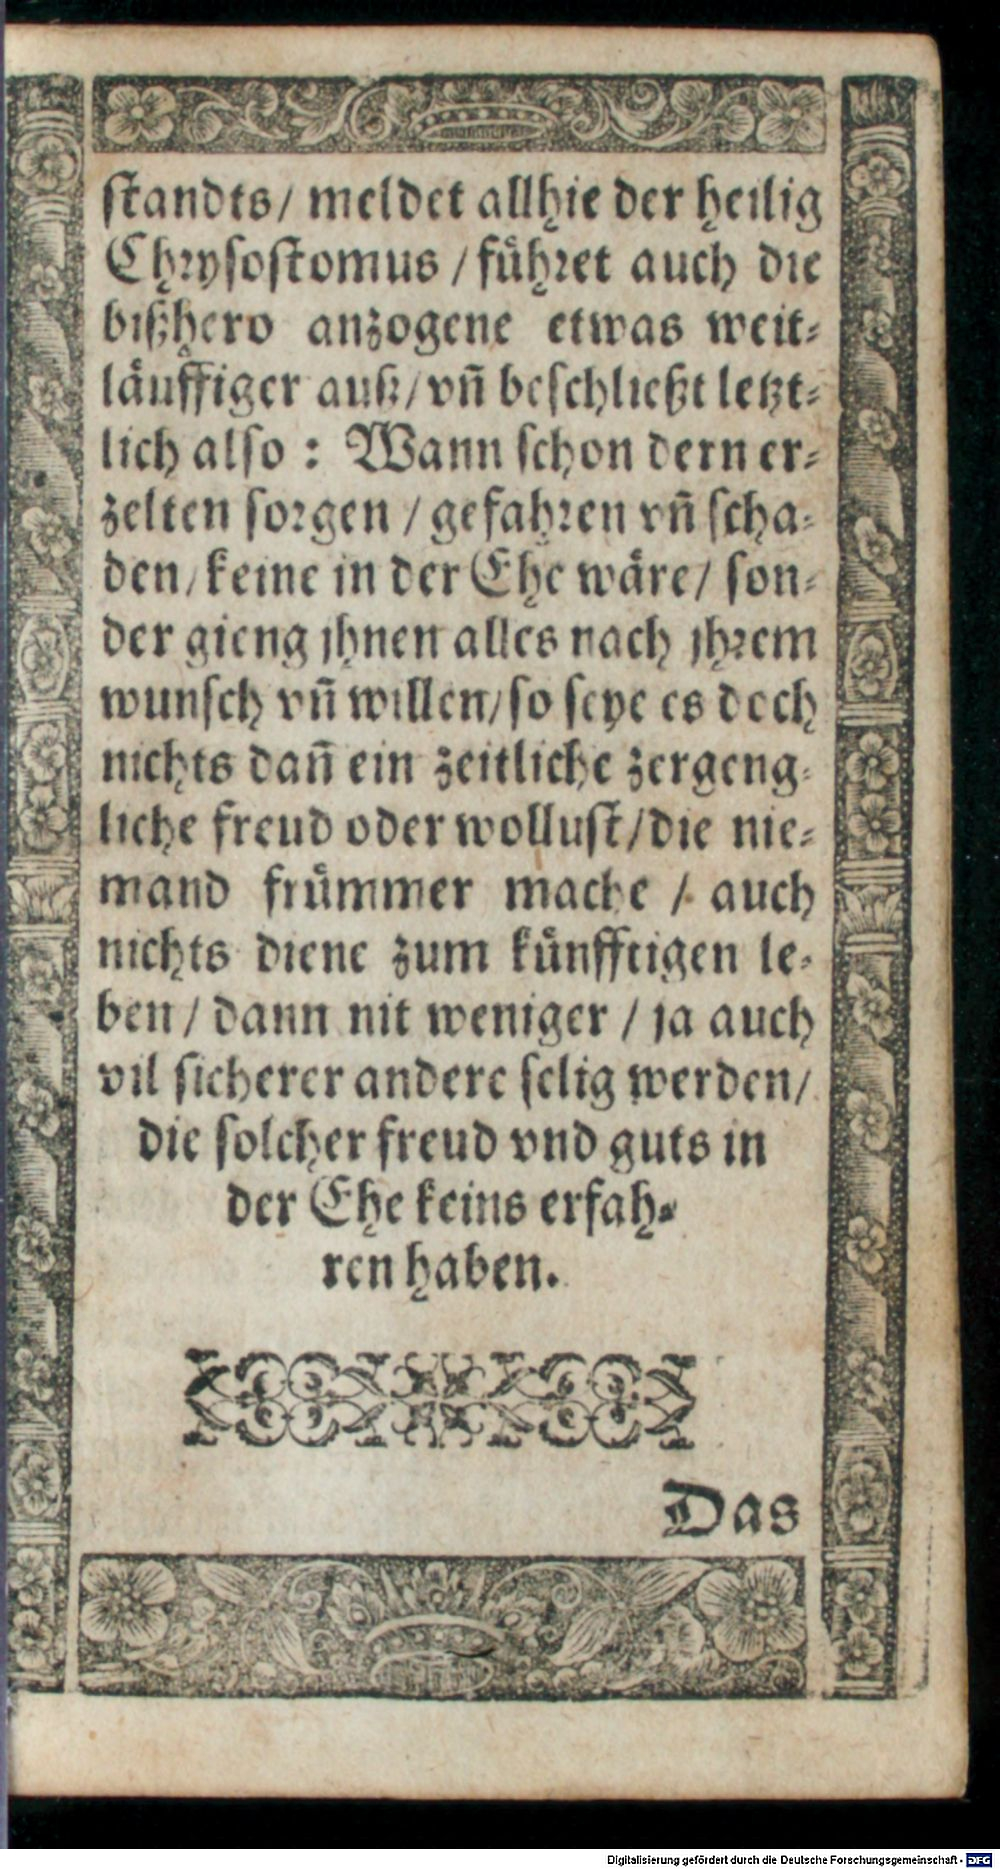 standts/ meldet allhie der heilig
Chrysostomus / fuͤhret auch die
bißhero anzogene etwas weit⸗
laͤuffiger auß/ vn̄ beschließt letzt⸗
lich also : Wann schon dern er⸗
zelten sorgen / gefahren vn̄ scha⸗
den/ keine in der Ehe waͤre/ son⸗
der gieng jhnen alles nach jhrem
wunsch vn̄ willen/ so seye es doch
nichts dan̄ ein zeitliche zergeng⸗
liche freud oder wollust/ die nie⸗
mand fruͤmmer mache / auch
nichts diene zum kuͤnfftigen le⸗
ben/ dann nit weniger / ja auch
vil sicherer andere selig werden/
die solcher freud vnd guts in
der Ehe keins erfah⸗
ren haben.
Das
Digitalisierung gefördert durch die Deutsche Forschungsgemeinschaft - DFG